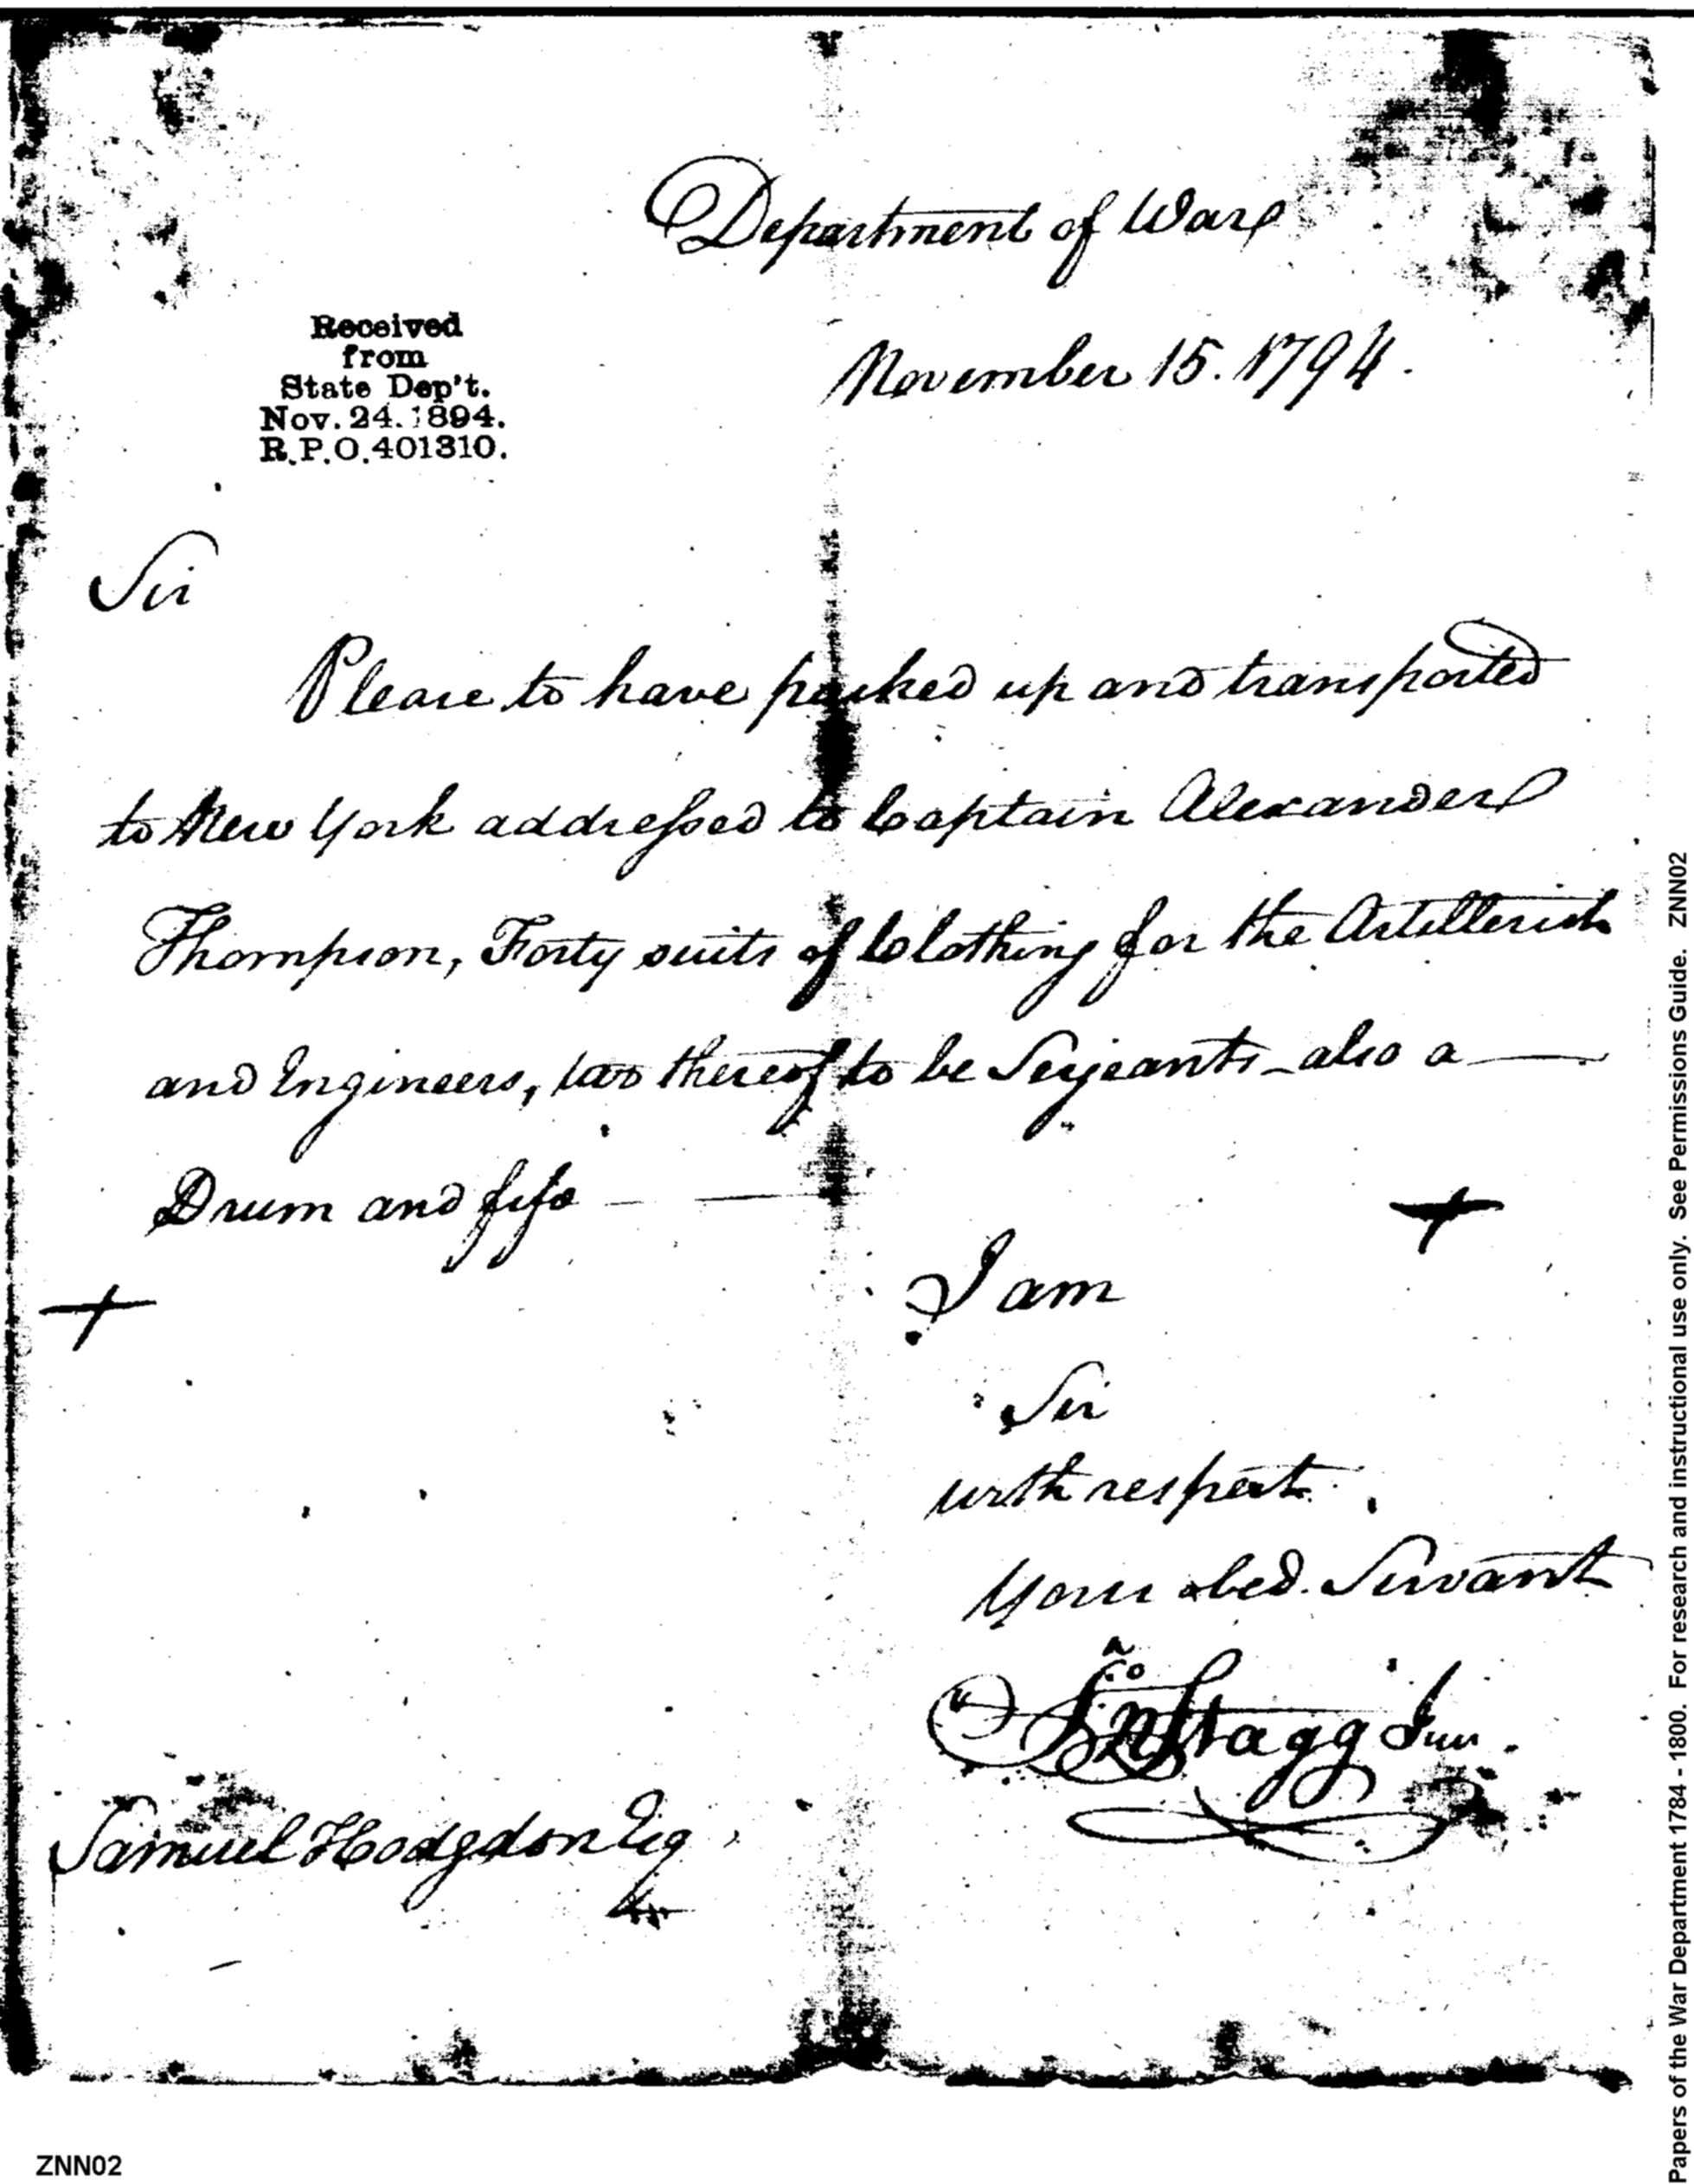 Department of War
November 15. 1794.
Received
from
State Dep't.
Nov. 24. 1894.
R.P.O. 401310.
Sir
Please to have packed up and transported
to New York addressed to Captain Alexander
Thompson, Forty suits of Clothing for the Artillerists
and Engineers, two thereof to be Serjeants - also a
Drum and fife
I am
Sir
with respect
Your obed. Servant
Jno Stagg Junr.
Samuel Hodgdon Esq
ZNN02
Papers of the War Department 1784 - 1800. For research and instructional use only. See Permissions Guide. ZNN02